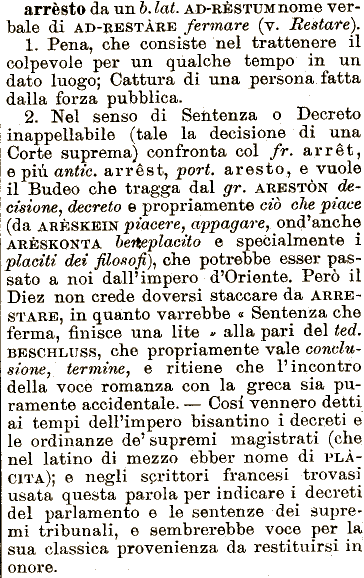 arrèsto da un b. lat. AD-RÈSTUM nome ver-
bale di AD-RESTÀRE fermare (v. Restare).
1. Pena, che consiste nel trattenere il
colpevole per un qualche tempo in un
dato luogo; Cattura di una persona fatta
dalla forza pubblica.
2. Nel senso di Sentenza o Decreto
inappellabile (tale la decisione di una
Corte suprema) confronta col fr. arrêt,
e più antic. arrêst, port. aresto, e vuole
il Budeo che tragga dal gr. ARESTÒN de-
cisione, decreto e propriamente ciò che piace
(da ARÈSKEIN piacere, appagare, ond'anche
ARÈSKONTA beneplacito e specialmente i
placiti dei filosofi), che potrebbe esser pas-
sato a noi dall'impero d'Oriente. Però il
Diez non crede doversi staccare da ARRE-
STARE, in quanto varrebbe « Sentenza che
ferma, finisce una lite » alla pari del ted.
BESCHLUSS, che propriamente vale conclu-
sione, termine, e ritiene che l'incontro
della voce romanza con la greca sia pu-
ramente accidentale. — Così vennero detti
ai tempi dell'impero bisantino i decreti e
le ordinanze de' supremi magistrati (che
nel latino di mezzo ebber nome di PLÀ-
CITA); e negli scrittori francesi trovasi
usata questa parola per indicare i decreti
del parlamento e le sentenze dei supre-
mi tribunali, e sembrerebbe voce per la
sua classica provenienza da restituirsi in
onore.